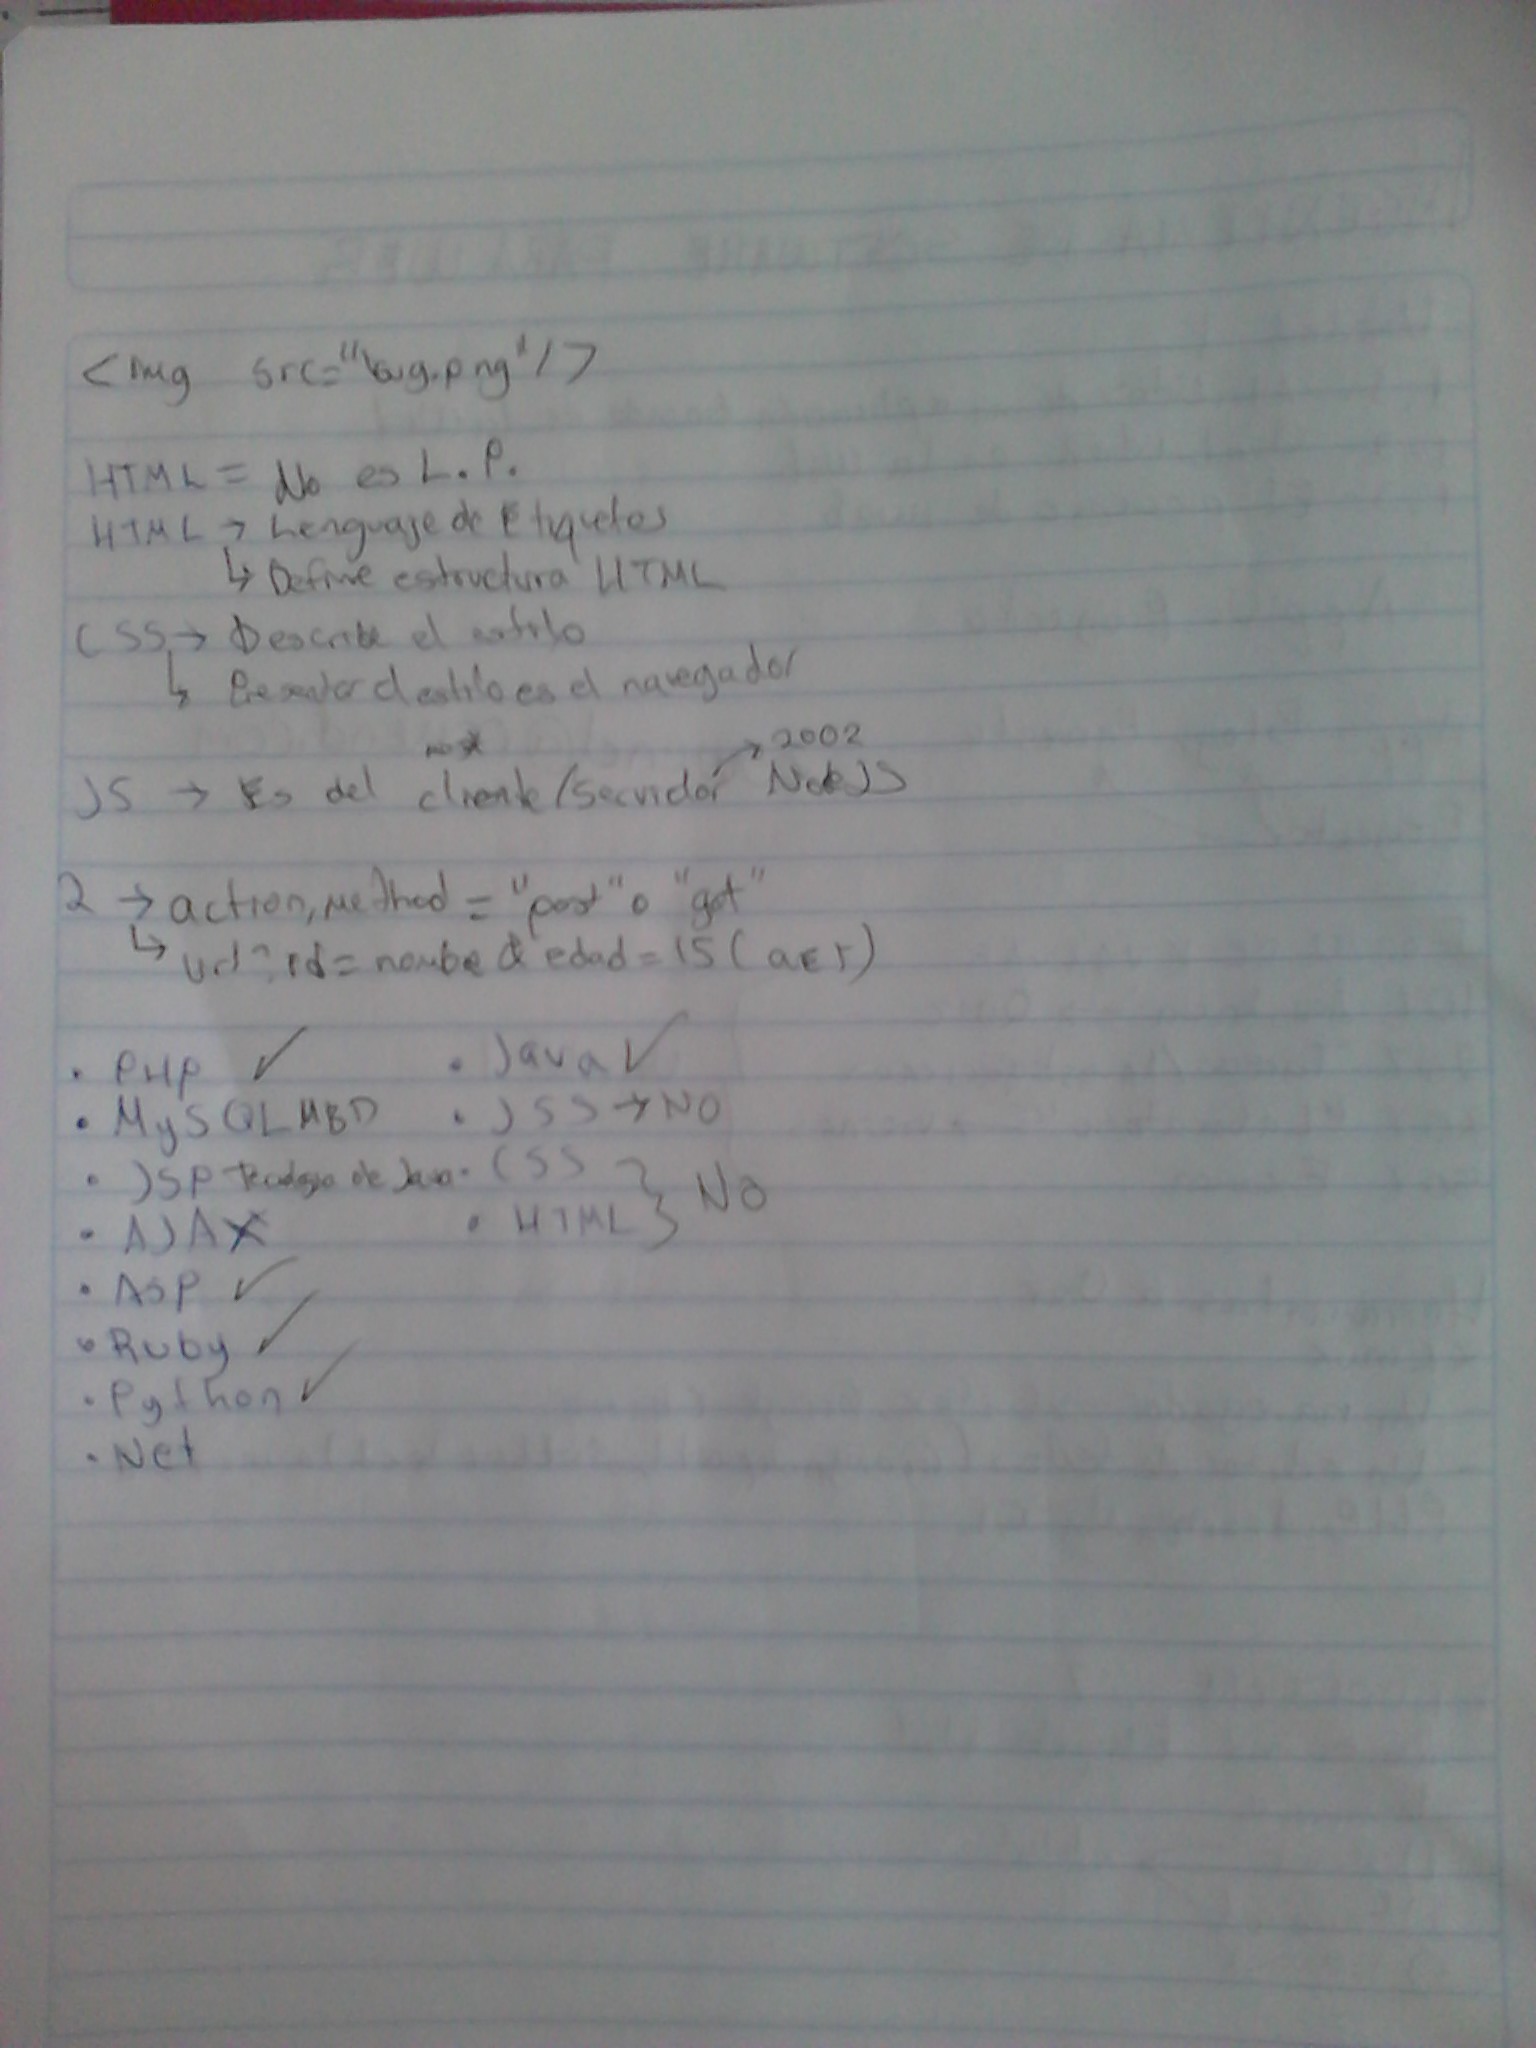 <img src="bug.png"/>
HTML = No es L.P.
HTML → Lenguaje de Etiquetas
↳ Define estructura HTML
CSS → Describe el estilo
↳ el estilo es el navegador
2002
JS → Es del cliente/servidor NodeJS
2 → action, method = "post" o "get"
↳ url?id=nombe & edad=15 (GET)
• PHP ✓
• MySQL MBD
• JSP Tecnologia de Java
• AJAX
• ASP ✓
• Ruby ✓
• Python ✓
• Net
• Java ✓
• JSS → NO
• CSS
• HTML } NO